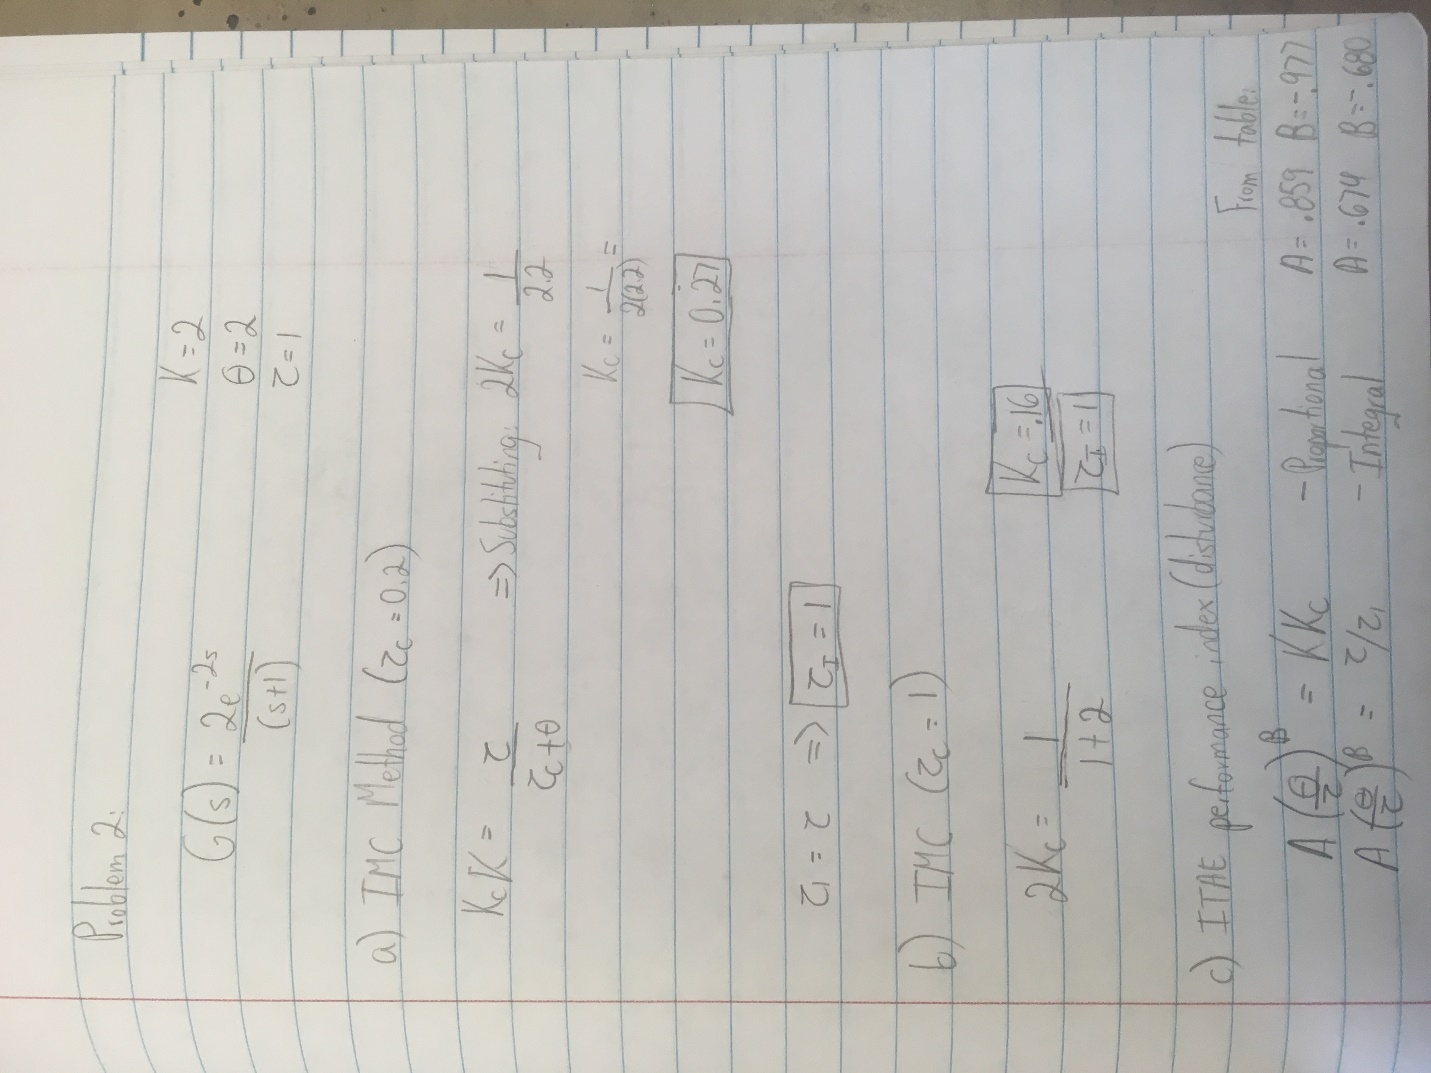 Problem 2:
G(s) = 2e^-2s / (s+1)
K=2
θ=2
τ=1
a) IMC Method (τc = 0.2)
KcK = τ / τc+θ => Substituting: 2Kc = 1 / 2.2
Kc = 1 / 2(2.2) =
Kc = 0.27
τI = τ => τI = 1
b) IMC (τc = 1)
2Kc = 1 / 1+2
Kc = .16
τI = 1
c) ITAE performance index (disturbance)
From table:
A (θ/τ)^B = KKc - Proportional A = .859 B = -.977
A (θ/τ)^B = τ/τI - Integral A = .674 B = -.680